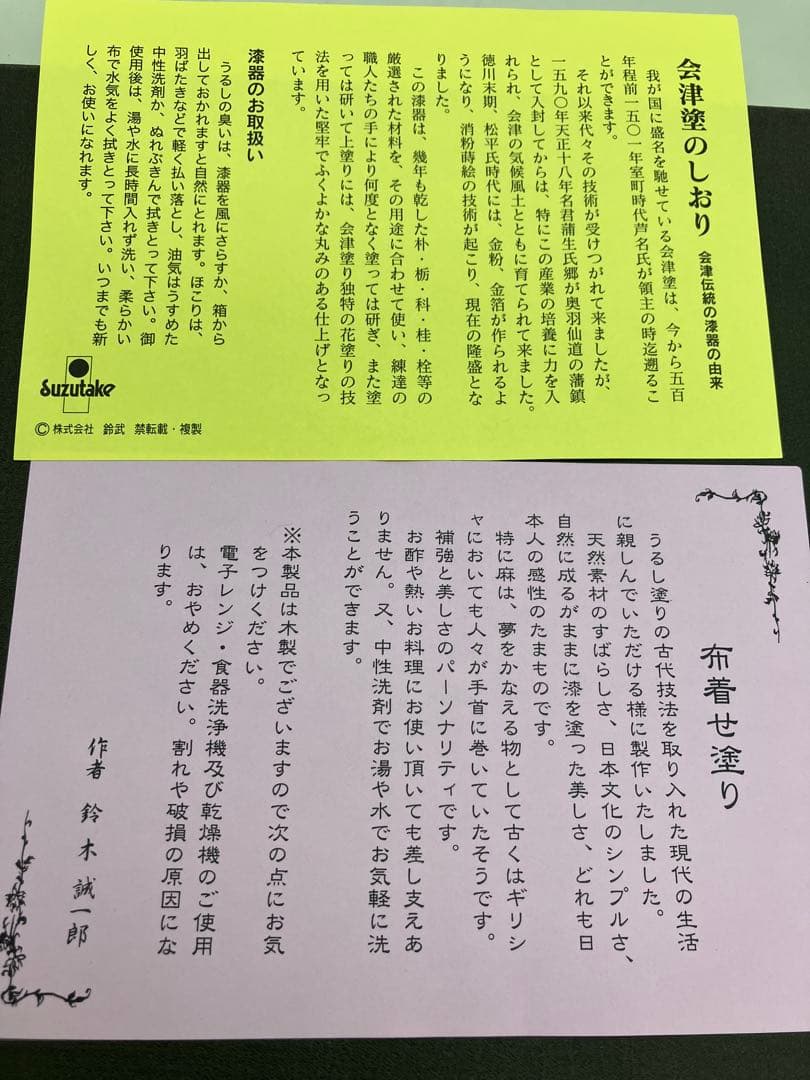 会津塗のしおり 会津伝統の漆器の由来
我が国に盛名を馳せている会津塗は、今から五百
年程前一五〇一年室町時代芦名氏が領主の時迄遡るこ
とができます。
それ以来代々その技術が受けつがれて来ましたが、
一五九〇年天正十八年名君蒲生氏郷が奥羽仙道の藩鎮
として入封してからは、特にこの産業の培養に力を入
れられ、会津の気候風土とともに育てられて来ました。
徳川末期、松平氏時代には、金粉、金箔が作られるよ
うになり、消粉蒔絵の技術が起こり、現在の隆盛とな
りました。
この漆器は、幾年も乾した朴・栃・科・桂・栓等の
厳選された材料を、その用途に合わせて使い、練達の
職人たちの手により何度となく塗っては研ぎ、また塗
っては研いで上塗りには、会津塗り独特の花塗りの技
法を用いた堅牢でふくよかな丸みのある仕上げとなっ
ています。
漆器のお取扱い
うるしの臭いは、漆器を風にさらすか、箱から
出しておかれますと自然にとれます。ほこりは、
羽ばたきなどで軽く払い落とし、油気はうすめた
中性洗剤か、ぬれぶきんで拭きとって下さい。御
使用後は、湯や水に長時間入れず洗い、柔らかい
布で水気をよく拭きとって下さい。いつまでも新
しく、お使いになれます。
Suzutake
©株式会社 鈴武 禁転載・複製
布着せ塗り
うるし塗りの古代技法を取り入れた現代の生活
に親しんでいただける様に製作いたしました。
天然素材のすばらしさ、日本文化のシンプルさ、
自然に成るがままに漆を塗った美しさ、どれも日
本人の感性のたまものです。
特に麻は、夢をかなえる物として古くはギリシ
ャにおいても人々が手首に巻いていたそうです。
補強と美しさのパーソナリティです。
お酢や熱いお料理にお使い頂いても差し支えあ
りません。又、中性洗剤でお湯や水でお気軽に洗
うことができます。
※本製品は木製でございますので次の点にお気
をつけください。
電子レンジ・食器洗浄機及び乾燥機のご使用
は、おやめください。割れや破損の原因にな
ります。
作者 鈴木 誠一郎